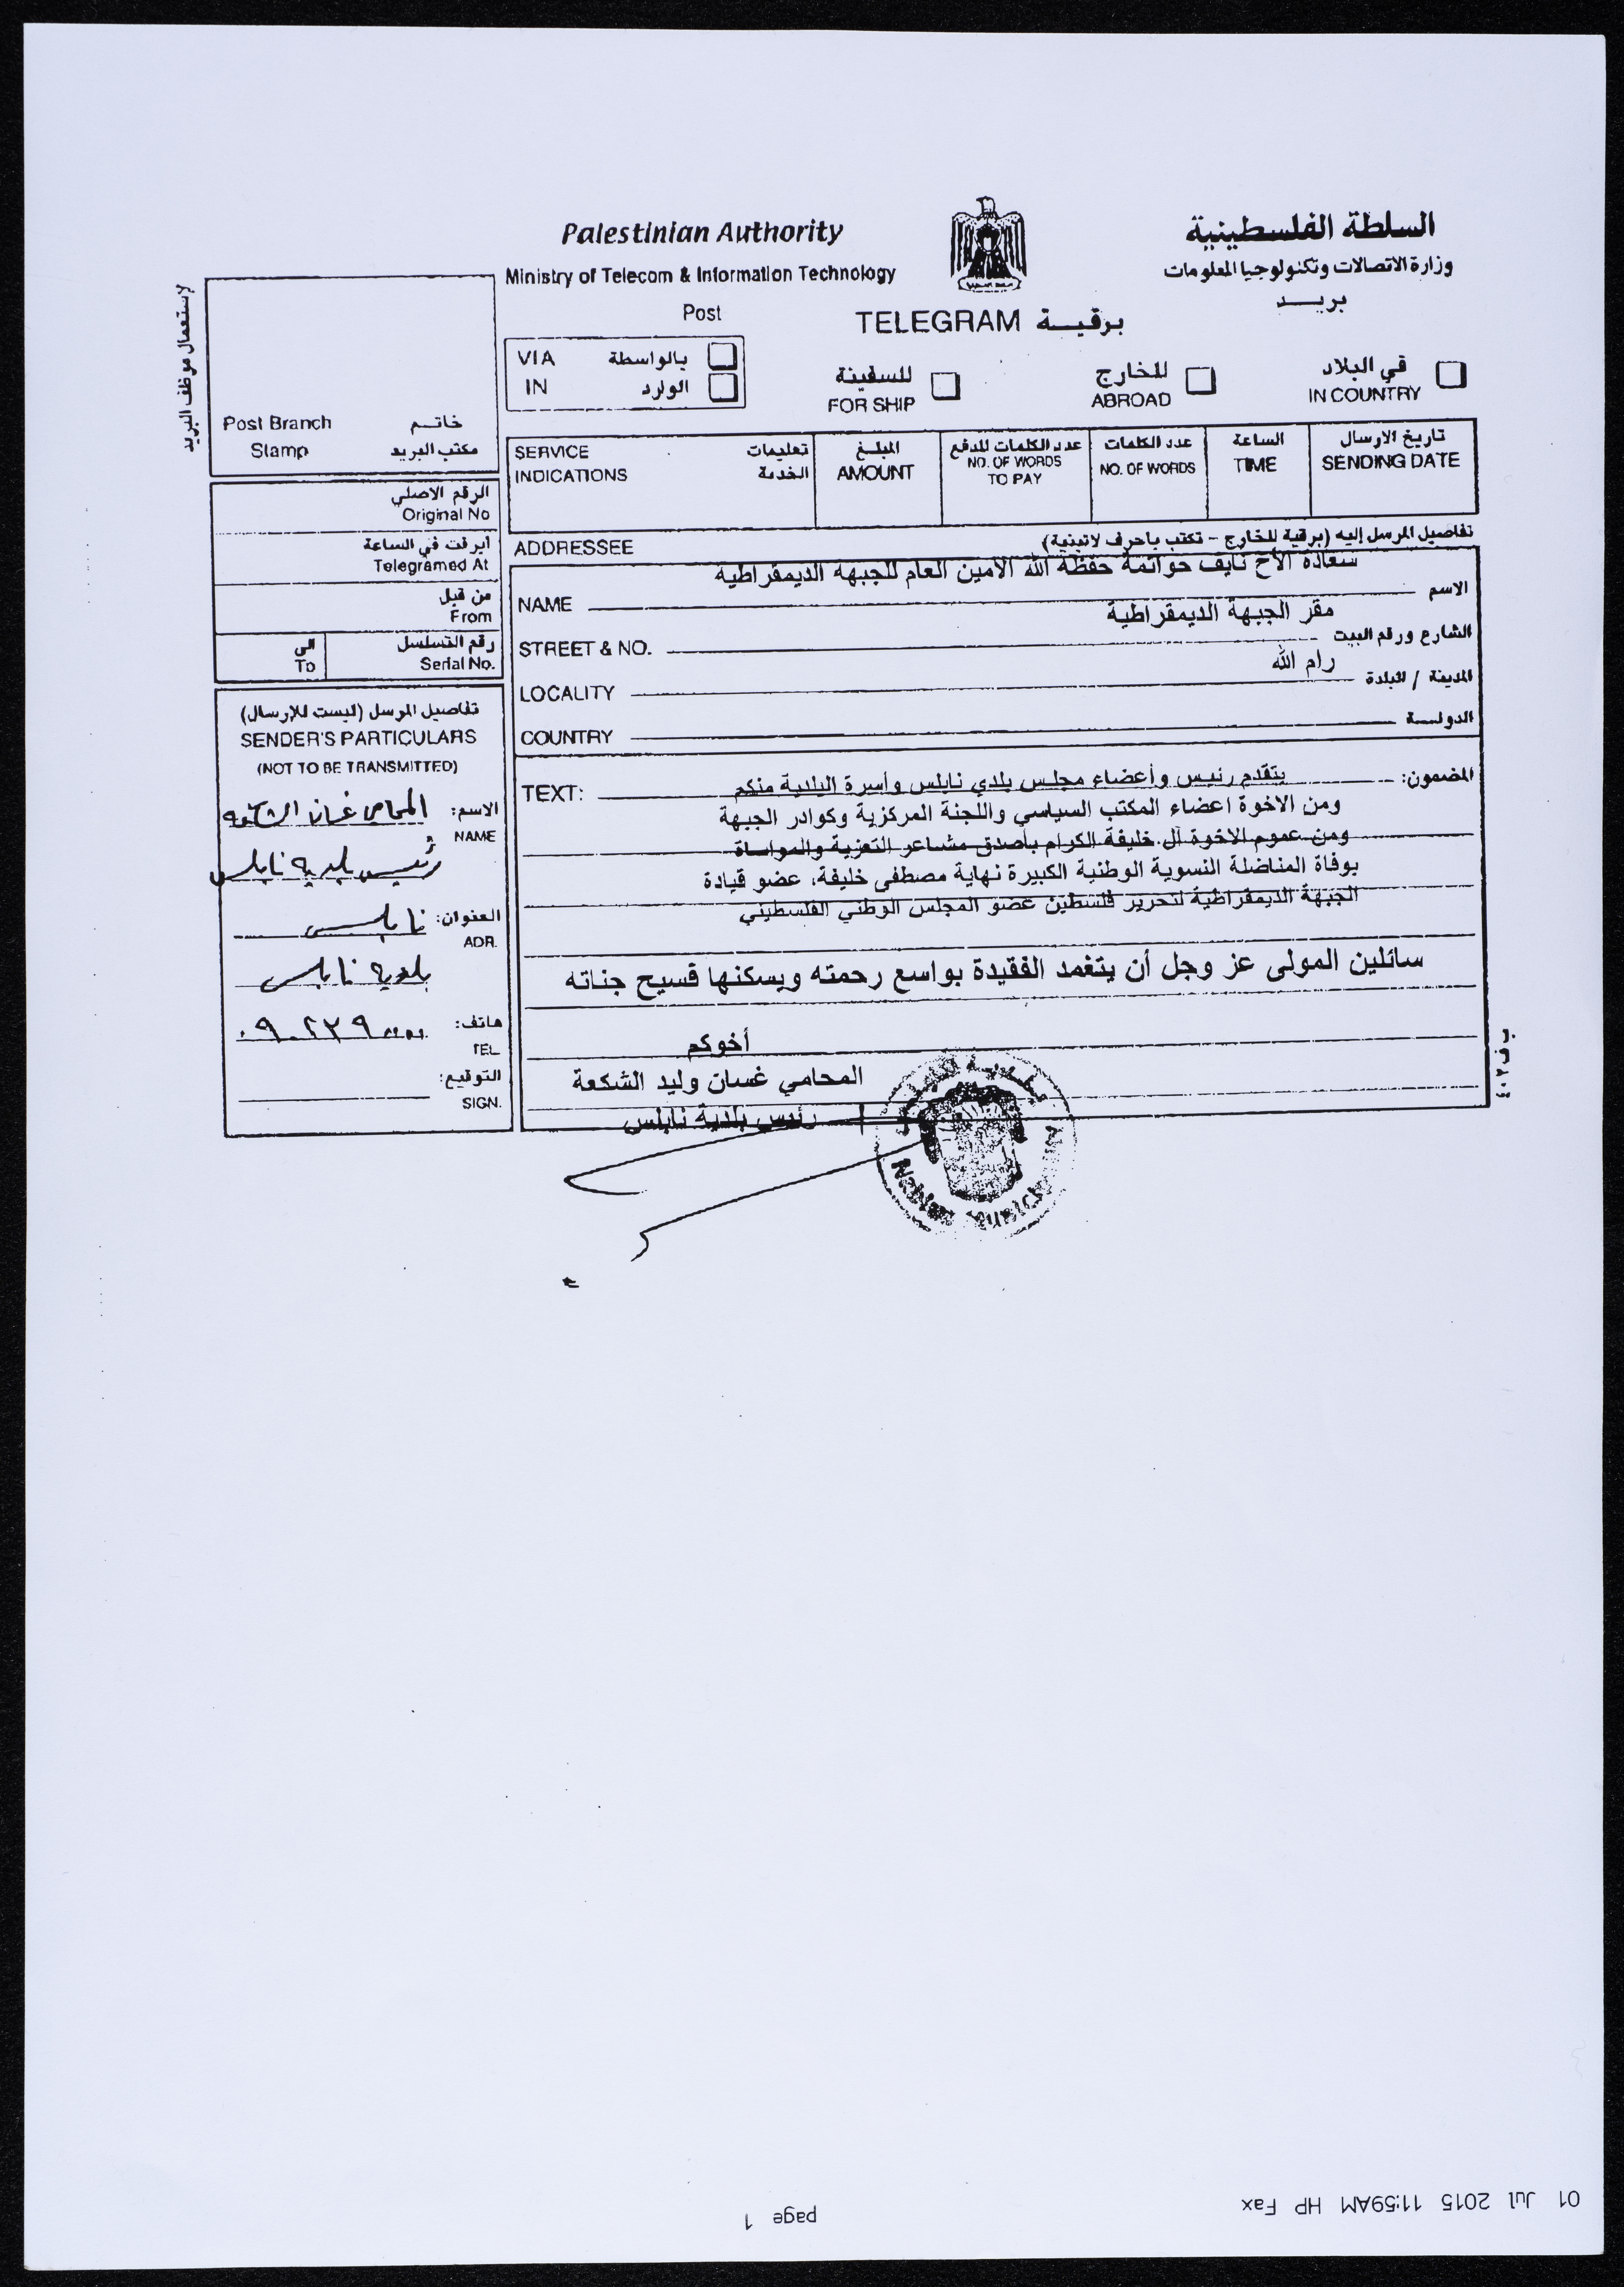 Palestinian Authority
السلطة الفلسطينية
Ministry of Telecom & Information Technology
وزارة الاتصالات وتكنولوجيا المعلومات
Post
بريـــد
TELEGRAM برقيـــة
VIA بالواسطة
IN الوارد
للسفينة
FOR SHIP
للخارج
ABROAD
في البلاد
IN COUNTRY
لإستعمال موظف البريد
Post Branch خاتـــم
Stamp مكتب البريد
SERVICE تعليمات
INDICATIONS الخدمة
المبلـــغ
AMOUNT
عدد الكلمات للدفع
NO. OF WORDS
TO PAY
عدد الكلمات
NO. OF WORDS
الساعة
TIME
تاريخ الارسال
SENDING DATE
الرقم الاصلي
Original No
ابرقت في الساعة
Telegramed At
من قبل
From
رقم التسلسل
Serial No.
الى
To
ADDRESSEE تفاصيل المرسل إليه (برقية للخارج - تكتب باحرف لاتينية)
سعادة الأخ نايف حواتمة حفظه الله الأمين العام للجبهة الديمقراطية
NAME الاسم
مقر الجبهة الديمقراطية
STREET & NO. الشارع ورقم البيت
رام الله
LOCALITY المدينة / البلدة
COUNTRY الدولـــة
تفاصيل المرسل (ليست للإرسال)
SENDER'S PARTICULARS
(NOT TO BE TRANSMITTED)
الاسم: المحامي غسان الشكعه
NAME
رئيس بلدية نابلس
العنوان: نابلس
ADR.
بلدية نابلس
هاتف:
TEL
التوقيع:
SIGN.
TEXT: المضمون:
يتقدم رئيس وأعضاء مجلس بلدي نابلس وأسرة البلدية منكم
ومن الاخوة اعضاء المكتب السياسي واللجنة المركزية وكوادر الجبهة
ومن عموم الاخوة آل خليفة الكرام بأصدق مشاعر التعزية والمواساة
بوفاة المناضلة النسوية الوطنية الكبيرة نهاية مصطفى خليفة، عضو قيادة
الجبهة الديمقراطية لتحرير فلسطين عضو المجلس الوطني الفلسطيني
سائلين المولى عز وجل أن يتغمد الفقيدة بواسع رحمته ويسكنها فسيح جناته
أخوكم
المحامي غسان وليد الشكعة
رئيس بلدية نابلس
Nablus
ب ف ٤٠٢
01 Jul 2015 11:59AM HP Fax
page 1